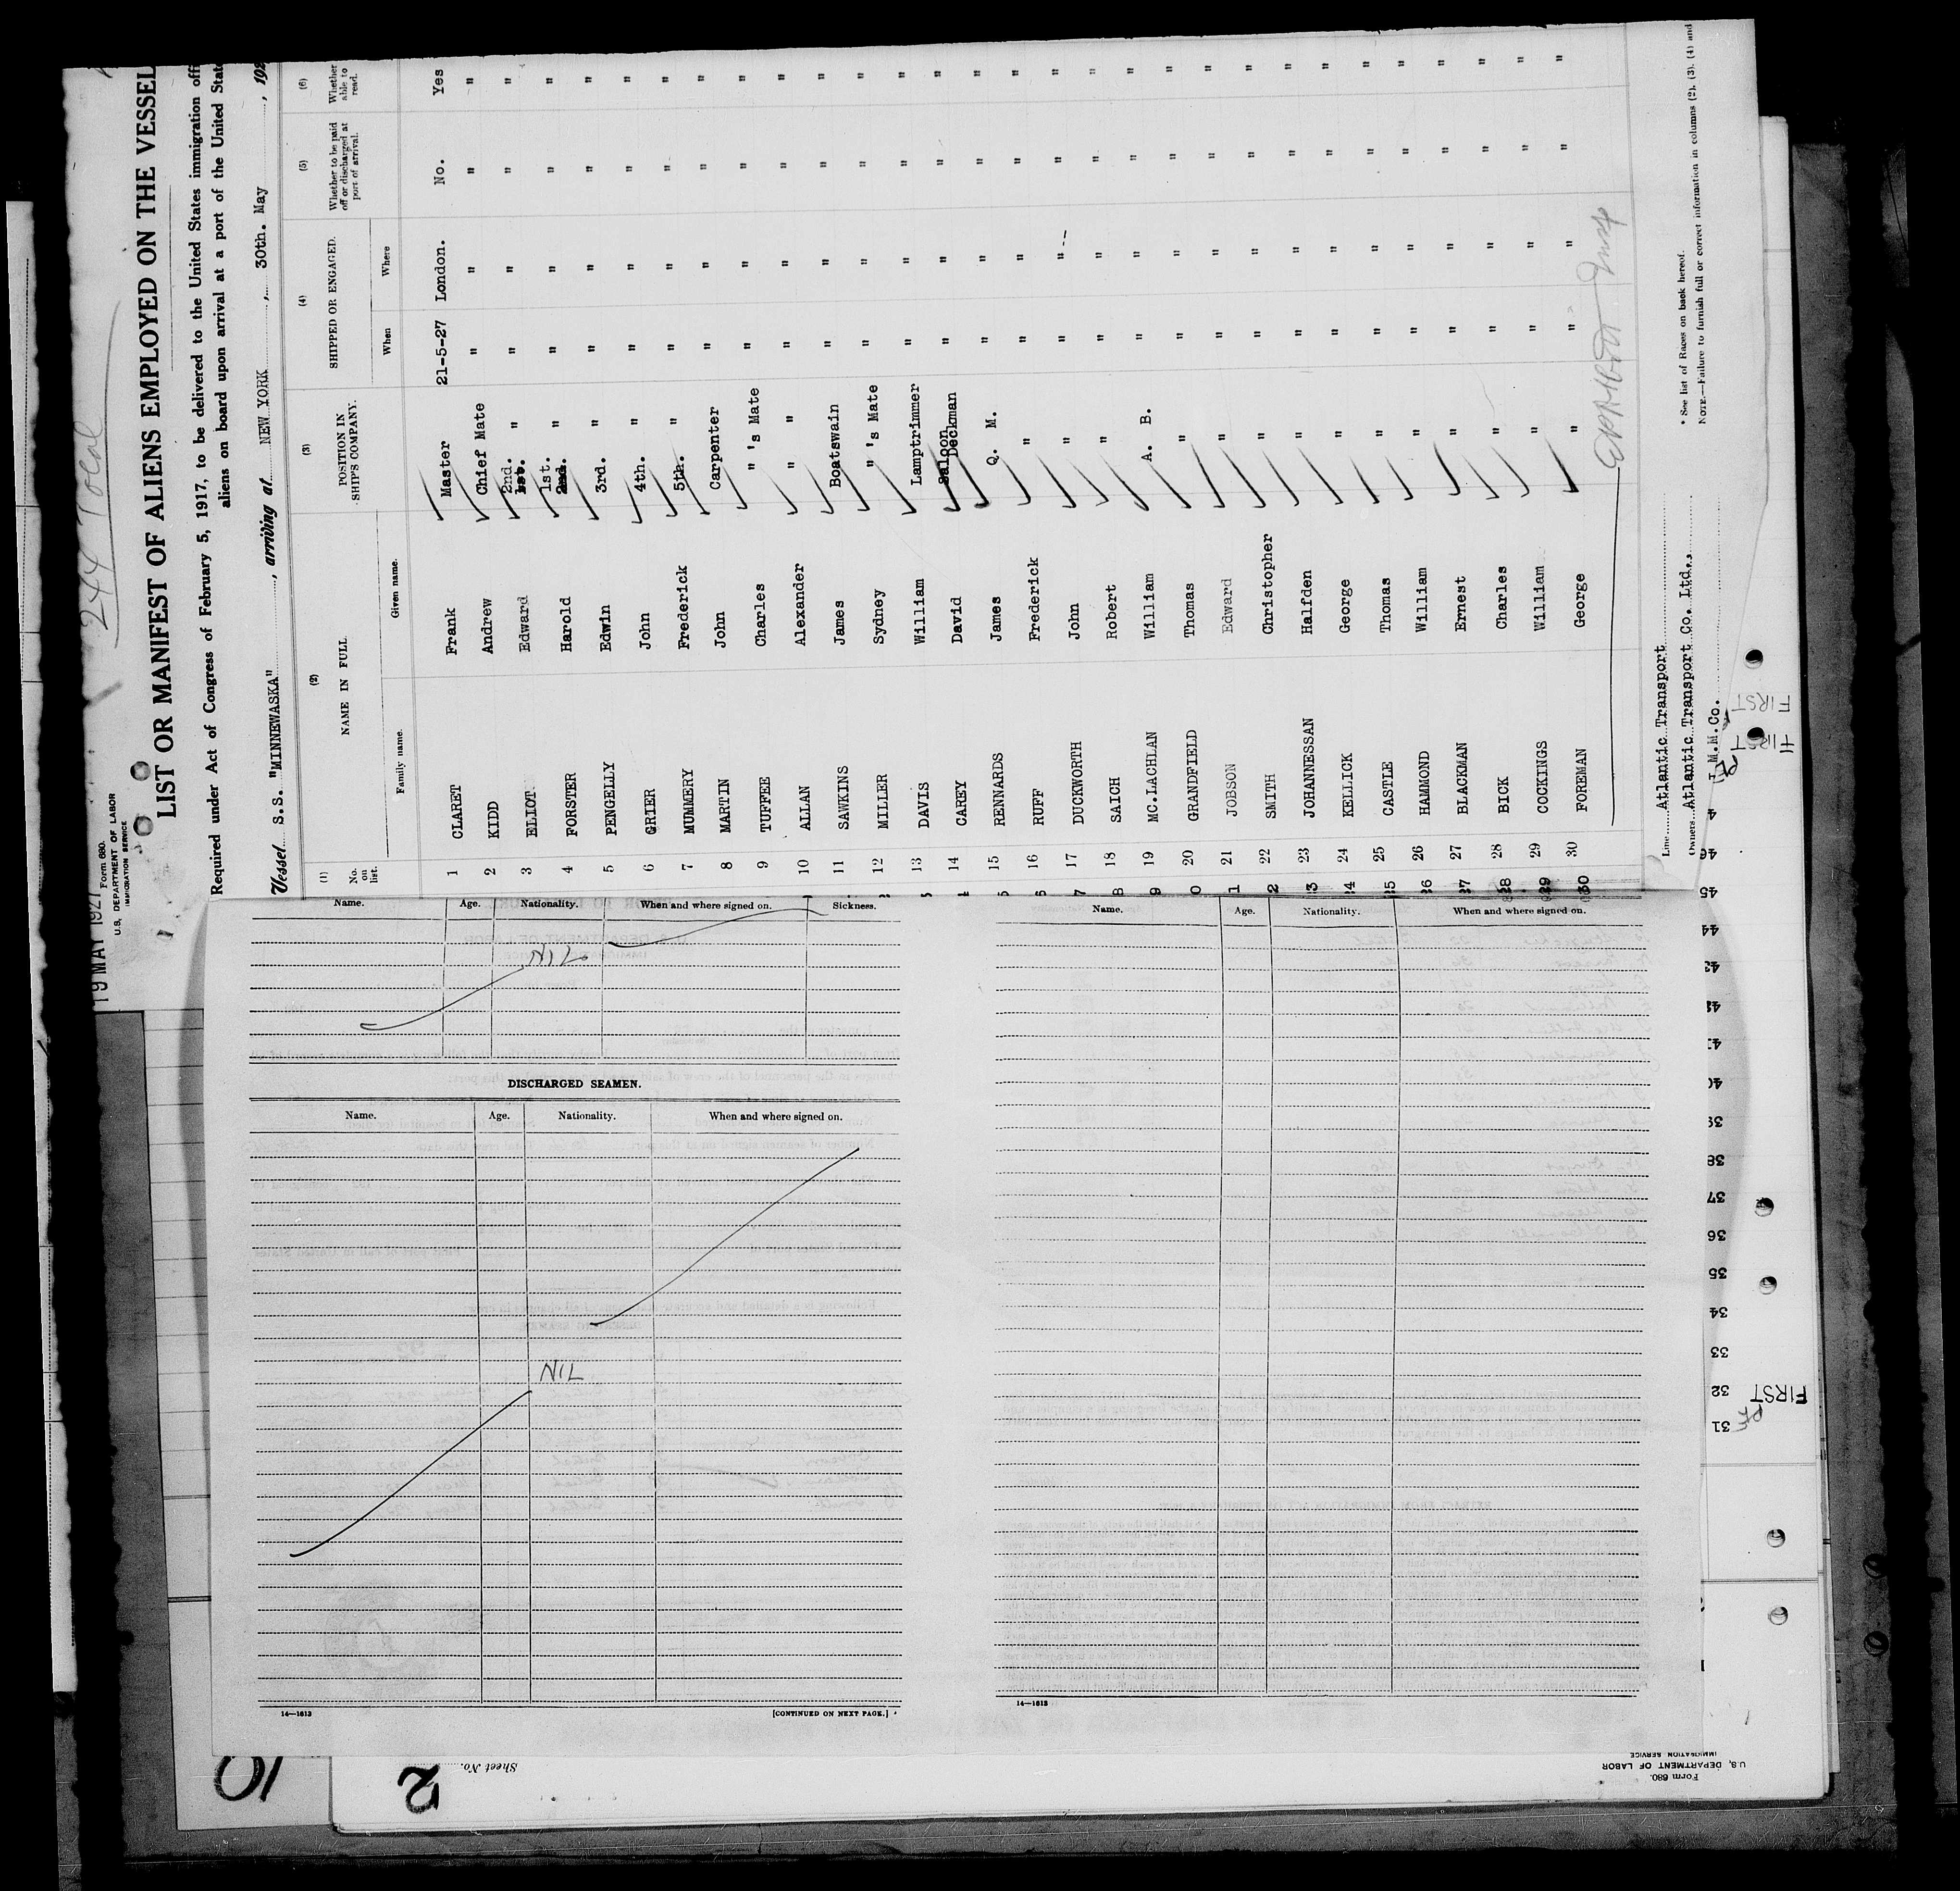 244 Total
19 MAY 1927
Form 680.
U.S. DEPARTMENT OF LABOR
IMMIGRATION SERVICE
LIST OR MANIFEST OF ALIENS EMPLOYED ON THE VESSEL
Required under Act of Congress of February 5, 1917, to be delivered to the United States immigration
aliens on board upon arrival at a port of the United
Vessel S.S. "MINNEWASKA", arriving at NEW YORK, 30th. May, 192
(1) (2) (3) (4) (5) (6)
No. on list. NAME IN FULL POSITION IN SHIP'S COMPANY. SHIPPED OR ENGAGED. Whether to be paid off or discharged at port of arrival. Whether able to read.
Family name. Given name. When Where
1 CLARET Frank Master 21-5-27 London. No. Yes
2 KIDD Andrew Chief Mate " " " "
3 ELIOT Edward 2nd. 1st. " " " " "
4 FORSTER Harold 1st. 2nd. " " " " "
5 PENGELLY Edwin 3rd. " " " " "
6 GRIER John 4th. " " " " "
7 MUMMERY Frederick 5th. " " " " "
8 MARTIN John Carpenter " " " "
9 TUFFEE Charles " 's Mate " " " "
10 ALLAN Alexander " " " " " "
11 SAWKINS James Boatswain " " " "
12 MILLER Sydney " 's Mate " " " "
13 DAVIS William Lamptrimmer " " " "
14 CAREY David Saloon Deckman " " " "
15 RENNARDS James Q. M. " " " "
16 RUFF Frederick " " " " "
17 DUCKWORTH John " " " " "
18 SAICH Robert " " " " "
19 MC.LACHLAN William A. B. " " " "
20 GRANDFIELD Thomas " " " " "
21 JOBSON Edward " " " " "
22 SMITH Christopher " " " " "
23 JOHANNESSAN Halfden " " " " "
24 KELLICK George " " " " "
25 CASTLE Thomas " " " " "
26 HAMMOND William " " " " "
27 BLACKMAN Ernest " " " " "
28 BICK Charles " " " " "
29 COCKINGS William " " " " "
30 FOREMAN George " " " " "
Line Atlantic Transport
Owners Atlantic Transport Co. Ltd.,
I.M.M.Co.
* See list of Races on back hereof.
NOTE.—Failure to furnish full or correct information in columns (2), (3), (4) and
Name. Age. Nationality. When and where signed on. Sickness.
NIL
DISCHARGED SEAMEN.
Name. Age. Nationality. When and where signed on.
NIL
14—1613
[CONTINUED ON NEXT PAGE.]
Name. Age. Nationality. When and where signed on.
14—1613
FIRST
FIRST
45
44
43
42
41
40
39
38
37
36
35
34
33
32 FIRST
31
10
2
Sheet No.
Form 680.
U.S. DEPARTMENT OF LABOR
IMMIGRATION SERVICE